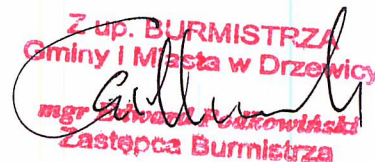 Z up. BURMISTRZA
Gminy i Miasta w Drzewicy
mgr
Zastępca Burmistrza